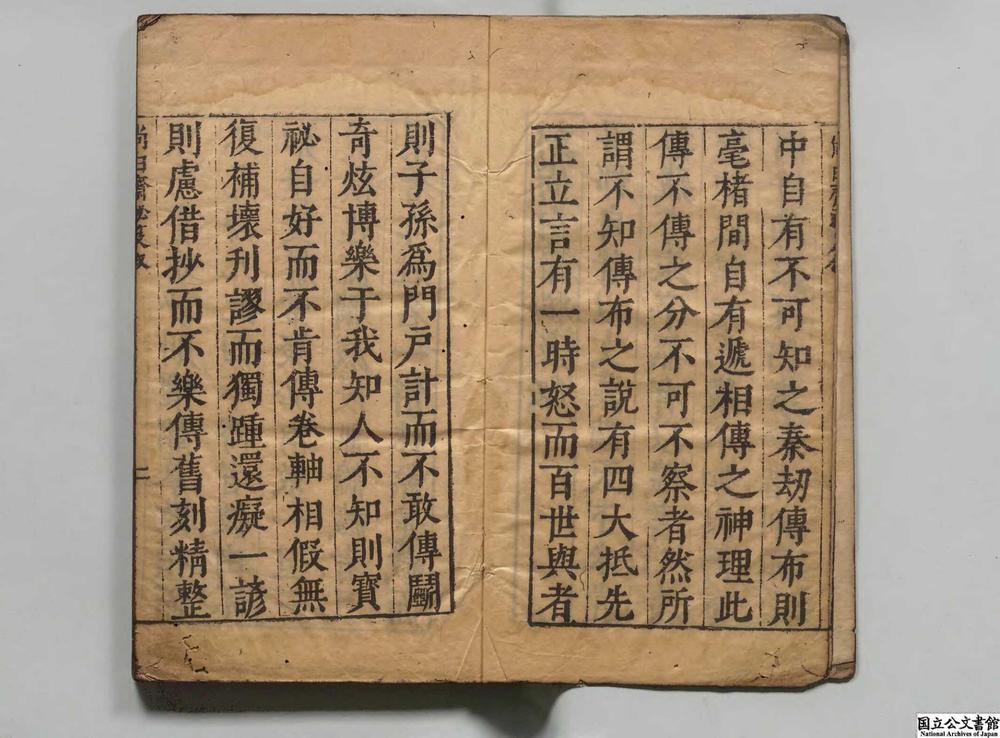 中自有不可知之秦劫傳布則
毫楮間自有遞相傳之神理此
傳不傳之分不可不察者然所
謂不知傳布之說有四大抵先
正立言有一時怒而百世與者
則子孫爲門戶計而不敢傳鬭
奇炫博樂于我知人不知則寶
祕自好而不肯傳卷軸相假無
復補壞刊謬而獨踵還癡一諺
則慮借抄而不樂傳舊刻精整
尚白齋祕笈敘
二
国立公文書館
National Archives of Japan